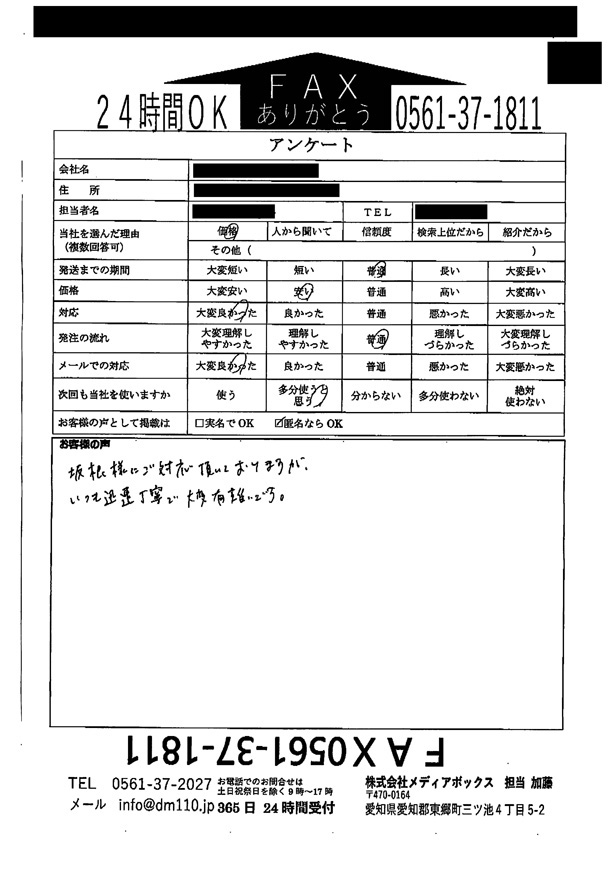 FAX
ありがとう
24時間OK
0561-37-1811
アンケート
会社名
住　所
担当者名　TEL
当社を選んだ理由（複数回答可）　価格　人から聞いて　信頼度　検索上位だから　紹介だから
その他（　）
発送までの期間　大変短い　短い　普通　長い　大変長い
価格　大変安い　安い　普通　高い　大変高い
対応　大変良かった　良かった　普通　悪かった　大変悪かった
発注の流れ　大変理解しやすかった　理解しやすかった　普通　理解しづらかった　大変理解しづらかった
メールでの対応　大変良かった　良かった　普通　悪かった　大変悪かった
次回も当社を使いますか　使う　多分使うと思う　分からない　多分使わない　絶対使わない
お客様の声として掲載は　□実名でOK　☑匿名ならOK
お客様の声
坂根様にご対応頂いておりますが、
いつも迅速丁寧で大変有難いです。
FAX0561-37-1811
TEL　0561-37-2027　お電話でのお問合せは土日祝祭日を除く9時～17時
メール　info@dm110.jp　365日 24時間受付
株式会社メディアボックス　担当 加藤
〒470-0164
愛知県愛知郡東郷町三ツ池4丁目5-2